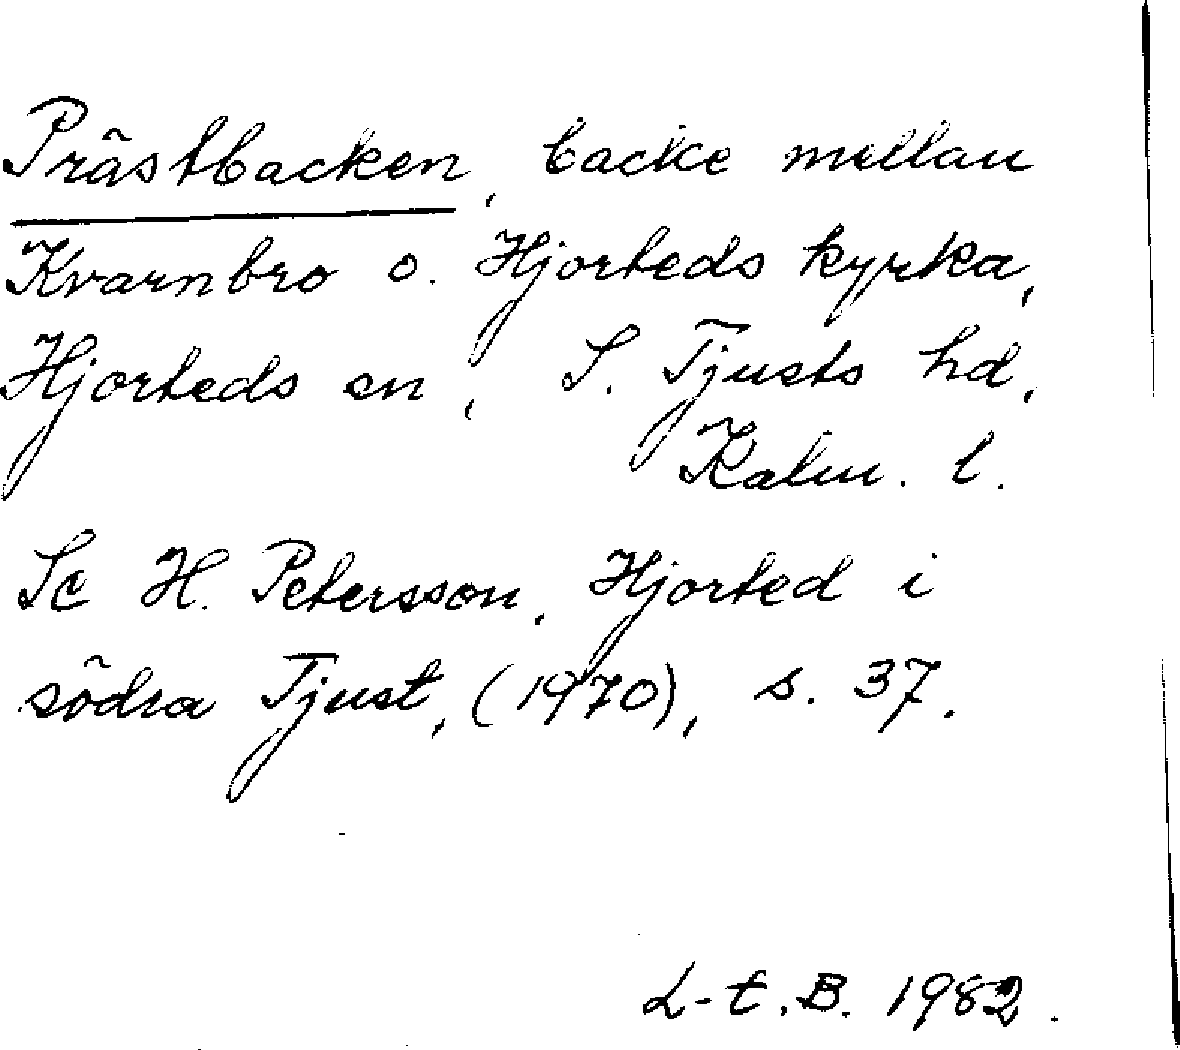 Prästbacken, backe mellan
Kvarnbro o. Hjorteds kyrka,
Hjorteds sn, S. Tjusts hd,
Kalm. l.
Se H. Petersson, Hjorted i
södra Tjust, (1970), s. 37.
L-t. B. 1982.